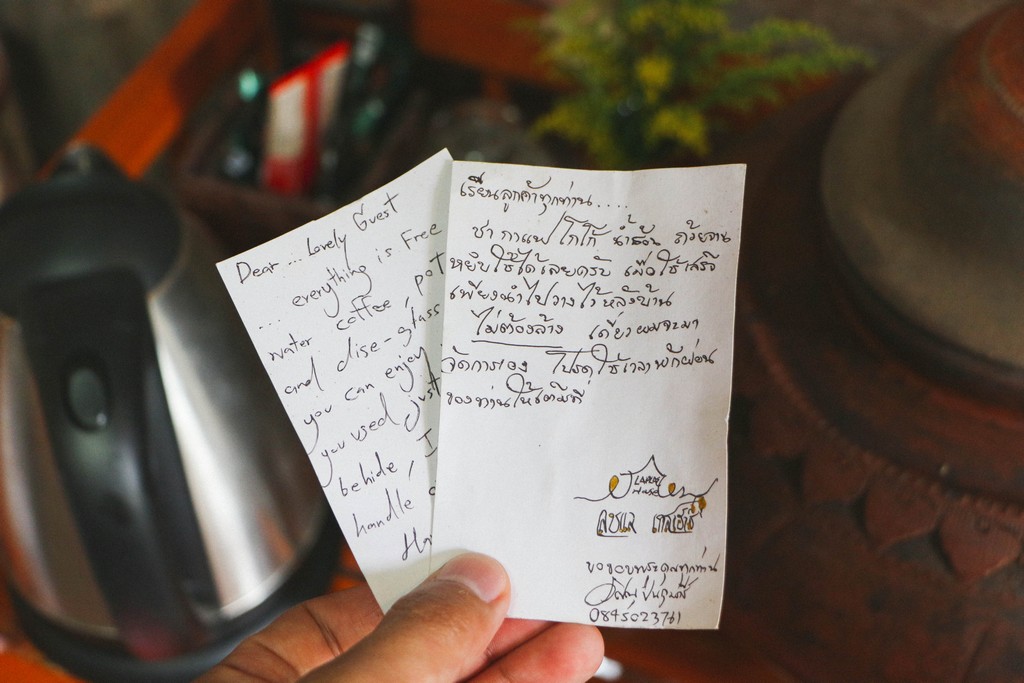 Dear....Lovely Guest
....everything is Free
water coffee, pot
and dise-glass
you can enjoy
you used Just
behide, I
handle
เรียนลูกค้าทุกท่าน....
ชา กาแฟ โกโก้ น้ำร้อน ถ้วยจาน
หยิบใช้ได้เลยครับ เมื่อใช้เสร็จ
เพียงนำไปวางไว้หลังบ้าน
ไม่ต้องล้าง เดี๋ยวผมจะมา
จัดการเอง โปรดใช้เวลาพักผ่อน
ของท่านให้เต็มที่
ลับแล
ขอขอบพระคุณทุกท่าน